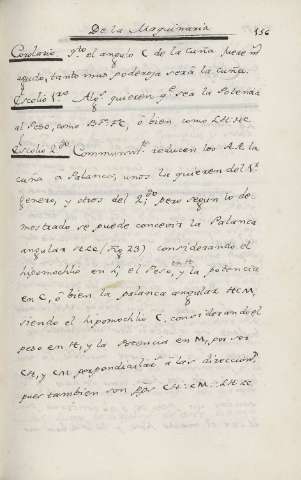 De la Maquinaria 156
Corolario 9.to el angulo C de la Cuña, fuere m.s
agudo, tanto mas poderosa será la cuña.
Escolio 1.ro Alg.s quieren q.e sea la Potencia
al Peso, como BF:FC, ó bien como
Escolio 2.do Communm.te reducen los AA. la
cuña a Palanca, unos la quieren del 1.r
genero, y otros del 2.do pero segun lo de-
mostrado se puede concevir la Palanca
angular (Fig 23) considerando el
hipomochlio en L, el Peso, en H, y la potencia
en C, ó bien la palanca angular HCM,
siendo el hipomochlio C, considerando el
peso en H, y la Potencia en M, por ser
CH, y CM perpendicular.s á las direccion.s
pues tambien son CH: CM::